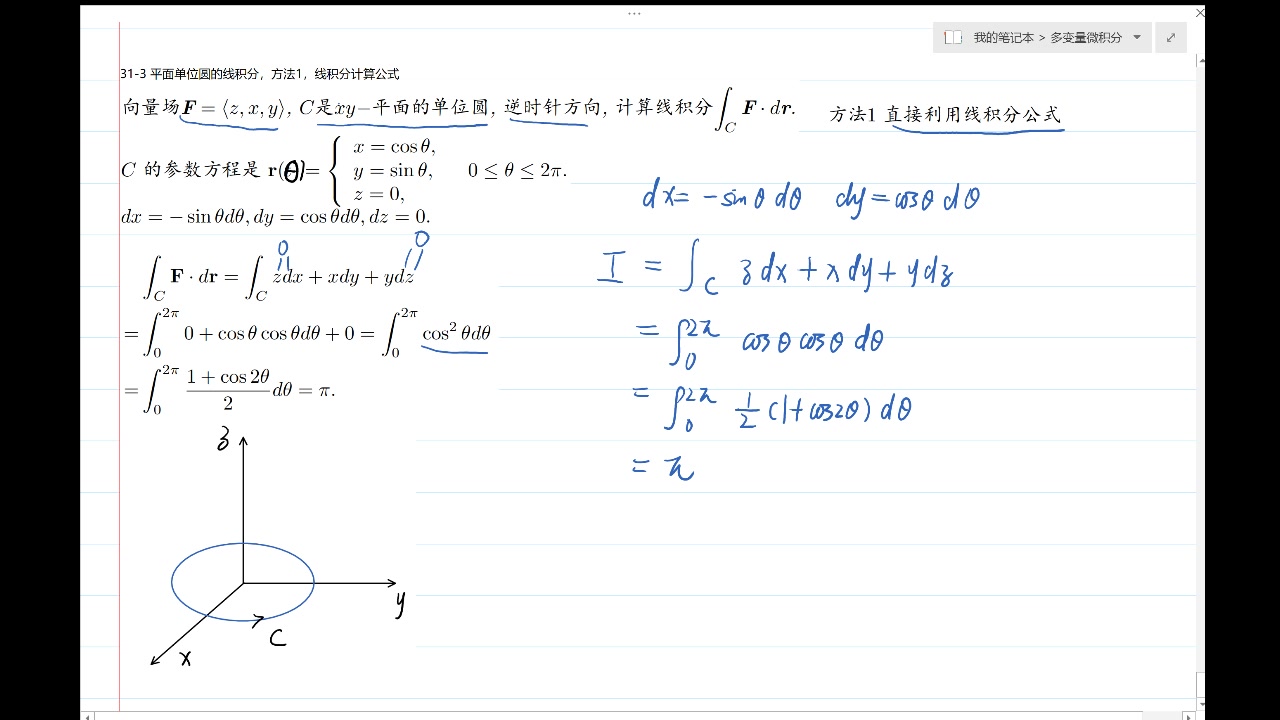 ...
我的笔记本 > 多变量微积分
31-3 平面单位圆的线积分，方法1，线积分计算公式
向量场F = ⟨z, x, y⟩, C是xy−平面的单位圆, 逆时针方向, 计算线积分∫_C F · dr.
方法1 直接利用线积分公式
C 的参数方程是 r(θ)= { x = cos θ,
y = sin θ, 0 ≤ θ ≤ 2π.
z = 0,
dx = − sin θdθ, dy = cos θdθ, dz = 0.
0 0
∫_C F · dr = ∫_C zdx + xdy + ydz
= ∫_0^{2π} 0 + cos θ cos θdθ + 0 = ∫_0^{2π} cos² θdθ
= ∫_0^{2π} (1 + cos 2θ)/2 dθ = π.
dx = − sin θ dθ dy = cos θ dθ
I = ∫_C z dx + x dy + y dz
= ∫_0^{2π} cos θ cos θ dθ
= ∫_0^{2π} 1/2 (1 + cos 2θ) dθ
= π
z
y
C
x